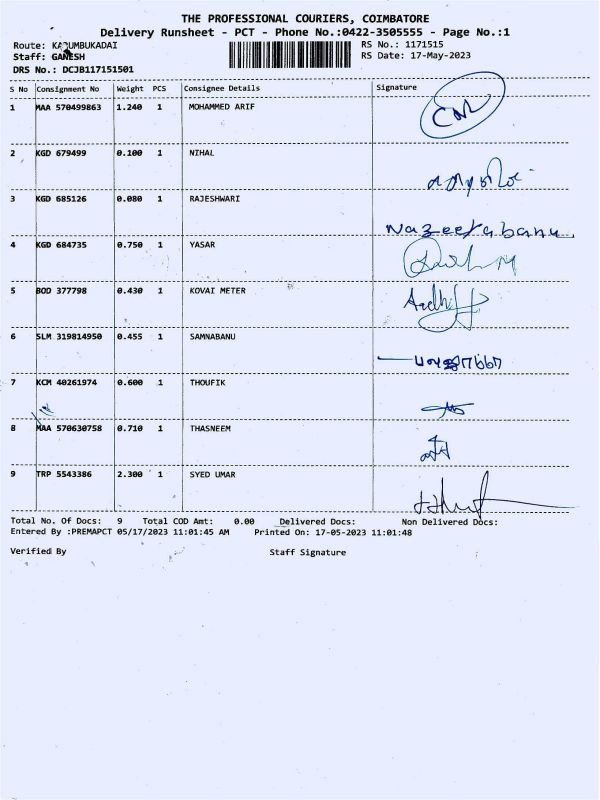 THE PROFESSIONAL COURIERS, COIMBATORE
Delivery Runsheet - PCT - Phone No.:0422-3505555 - Page No.:1
Route: KARUMBUKADAI RS No.: 1171515
Staff: GANESH RS Date: 17-May-2023
DRS No.: DCJB117151501
S No Consignment No Weight PCS Consignee Details Signature
1 MAA 570499863 1.240 1 MOHAMMED ARIF
2 KGD 679499 0.100 1 NIHAL
3 KGD 685126 0.080 1 RAJESHWARI Nazeerabanu
4 KGD 684735 0.750 1 YASAR
5 BOD 377798 0.430 1 KOVAI METER
6 SLM 319814950 0.455 1 SAMNABANU
7 KCM 40261974 0.600 1 THOUFIK
8 MAA 570630758 0.710 1 THASNEEM
9 TRP 5543386 2.300 1 SYED UMAR
Total No. Of Docs: 9 Total COD Amt: 0.00 Delivered Docs: Non Delivered Docs:
Entered By :PREMAPCT 05/17/2023 11:01:45 AM Printed On: 17-05-2023 11:01:48
Verified By Staff Signature